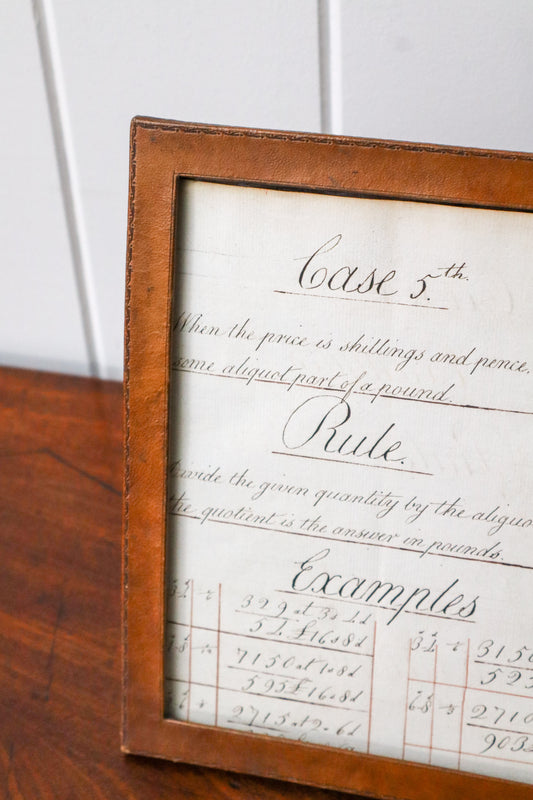 Case 5.th
When the price is shillings and pence.
some aliquot part of a pound.
Rule.
Divide the given quantity by the aliquo
the quotient is the answer in pounds.
Examples
329 at 3s 4d
54 £16s 8d
7150 at 1s 8d
595£ 16s 8d
2715 at 2s 6d
3150
525
2710
903